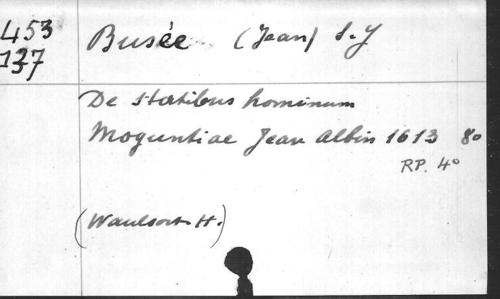 453
137
Busée (Jean) S.J
De statibus hominum
Moguntiae Jean Albin 1613 8o
RP. 4o
(Waulsort H.)